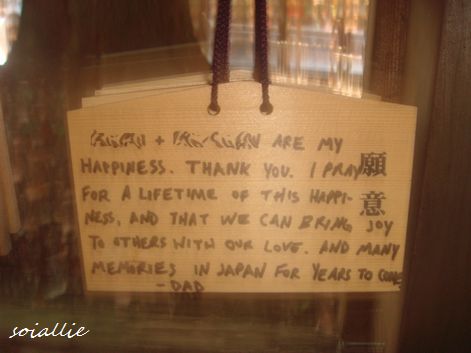 + ARE MY
HAPPINESS. THANK YOU. I PRAY
FOR A LIFETIME OF THIS HAPPI-
NESS, AND THAT WE CAN BRING JOY
TO OTHERS WITH OUR LOVE. AND MANY
MEMORIES IN JAPAN FOR YEARS TO COME
- DAD
願意
soiallie